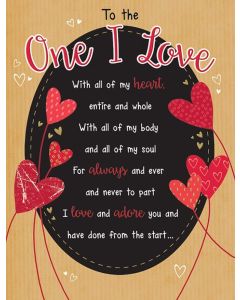 To the
One I Love
With all of my heart,
entire and whole
With all of my body
and all of my soul
For always and ever
and never to part
I love and adore you and
have done from the start...